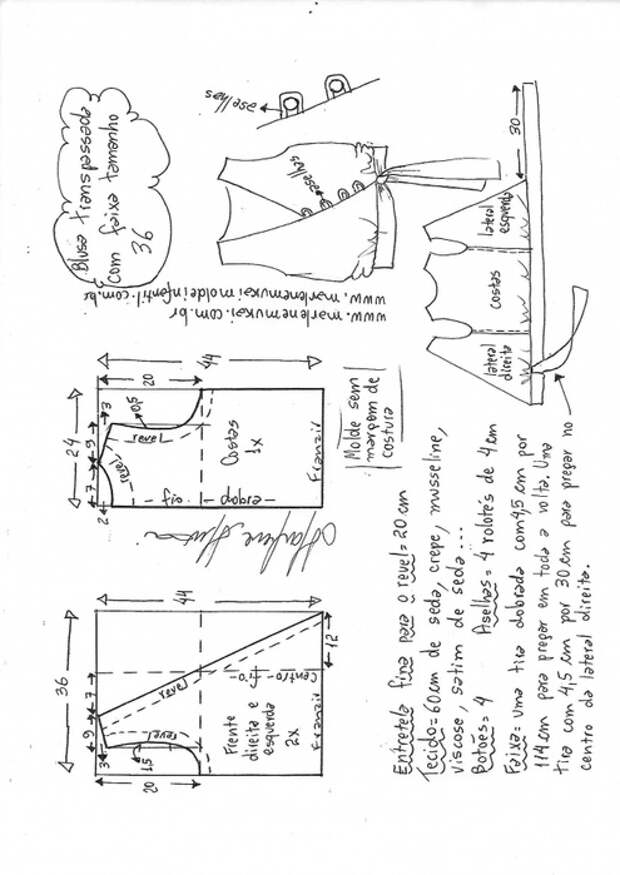 Blusa transpassada
com faixa tamanho
36
aselhas
aselhas
www.marlenemukai.com.br
www.marlenemukaimoldeinfantil.com.br
30
lateral
esquerda
costas
lateral
direita
36
9
7
3
20
1,5
revel
revel
44
12
Centro - fio -
Frente
direita e
esquerda
2x
Franzir
24
7
9
2
3
20
0,5
revel
revel
44
Costas
1x
- dobra - fio -
Franzir
Molde sem
margem de
costura
Marlene Mukai
Entretela fina para o revel = 20 cm
Tecido = 60 cm de seda, crepe, musseline,
viscose, satim de seda...
Botões = 4 Aselhas = 4 rolotés de 4 cm
Faixa = uma tira dobrada com 4,5 cm por
114 cm para pregar em toda a volta. Uma
tira com 4,5 cm por 30 cm para pregar no
centro da lateral direita.